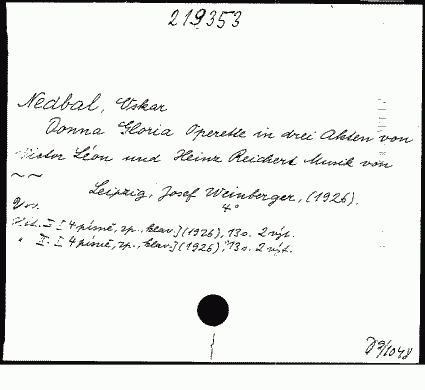 219353
Nedbal, Oskar
Donna Gloria Operette in drei Akten von
Victor Léon und Heinz Reichert Musik von
~ ~
Leipzig, Josef Weinberger, (1926).
4°
Hit. I [4 písně, zp., klav.] (1926), 13 s. 2 výt.
" II. [4 písně, zp., klav.] (1926), 13 s. 2 výt.